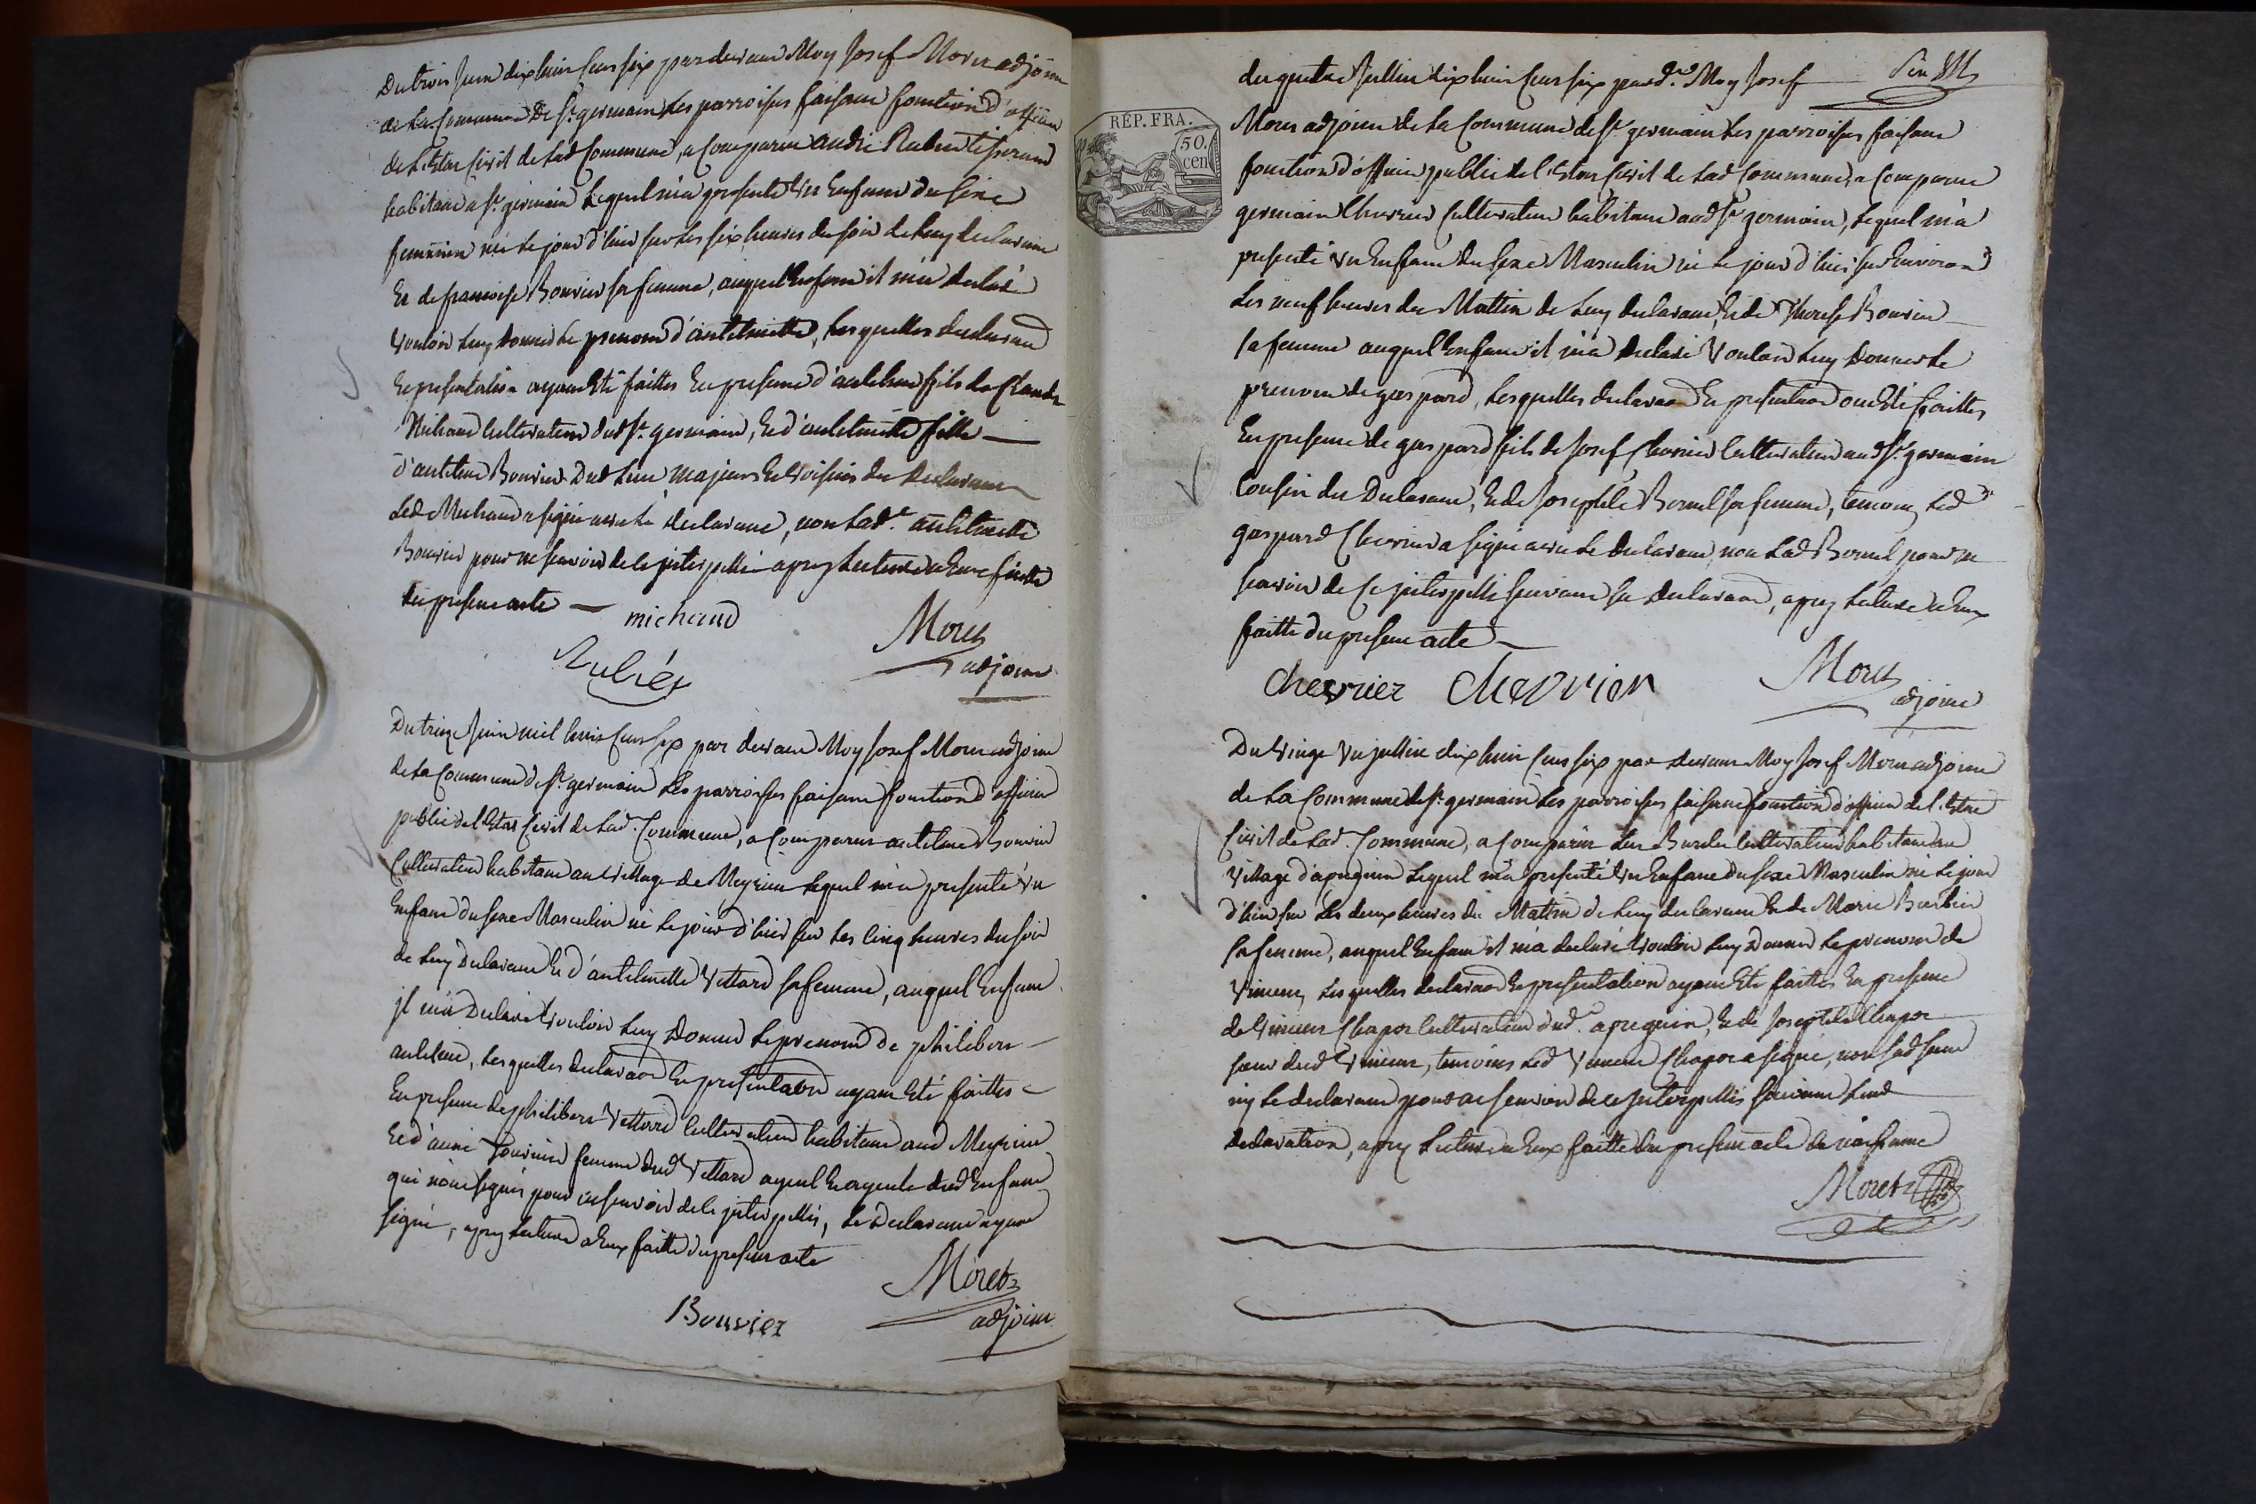 Du trois Juin dix huit cens six par devant Moy Josef Moret adjoint
de la Commune de St. germain les parroisses faisant fonction d'officier
de l'Etat Civil de lad Commune, a Comparu andré tisserand
habitant a St. germain lequel m'a presenté un Enfant du sexe
feminin né le jour d'hier sur les six heures du soir de luy declarant
Et de francoise Bouvier sa femme, auquel Enfant il m'a declaré
vouloir luy donner le prenom d'antelmette, lesquelles declaration
Et presentation ayant été faittes En presence d'antelme fils de Claude
Michaud Cultivateur dud St. germain, Et d'antelmette fille
d'antelme Bouvier dud lieu majeurs Et voisins du declarant
led Michaud a signé avec le declarant, non lad.e antelmette
Bouvier pour ne savoir de ce interpellé apres lecture a Eux faitte
du present acte
michaud
Moret
adjoint
Du treize Juin mil huit cens six par devant Moy Josef Moret adjoint
de la Commune de St. germain les parroisses faisant fonction d'officier
public de l'Etat Civil de lad. Commune, a Comparu antelme Bouvier
Cultivateur habitant au village de Meyrieu lequel m'a presenté un
Enfant du sexe Masculin né le jour d'hier sur les cinq heures du soir
de luy declarant Et d'antelmette Vettard sa femme, auquel Enfant
il m'a declaré vouloir luy donner le prenom de philibert
antelme, lesquelles declaraon Et presentation ayant été faittes
En presence de philibert Vettard Cultivateur habitant aud Meyrieu
Et d'anne femme dud Vettard ayeul Et ayeule dud Enfant
qui n'ont signés pour ne savoir de ce interpellés, le declarant ayant
signé, apres lecture a Eux faitte du present acte
Moret
Bouvier
adjoint
du quatre Juillet dix huit cens six pard.t Moy Josef
REP. FRA.
50.
cen
Moret adjoint de la Commune de St. germain les parroisses faisant
fonction d'officier public de l'Etat Civil de lad Commune, a Comparu
germain Chevrier Cultivateur habitant aud St. germain, lequel m'a
presenté un Enfant du sexe Masculin né le jour d'hier sur Environ
les neuf heures du Mattin de luy declarant, Et de Therese Bouvier
sa femme auquel Enfant il m'a declaré vouloir luy donner le
prenom de gaspard, lesquelles declaraon Et presentaon ont été faittes
En presence de gaspard fils de Josef Chevrier Cultivateur aud St. germain
Cousin du declarant, Et de Josephte sa femme, temoins, led
gaspard Chevrier a signé avec le declarant, non lad pour ne
savoir de ce interpellé suivant sa declaraon, apres lecture a Eux
faitte du present acte
Chevrier Chevrier
Moret
adjoint
Du vingt un juillet dix huit cens six par devant Moy Josef Moret adjoint
de la Commune de St. germain les parroisses faisant fonction d'officier de l'Etat
Civil de lad. Commune, a Comparu Cultivateur habitant au
village d'apregnin lequel m'a presenté un Enfant du sexe Masculin né le jour
d'hier sur les deux heures du Mattin de luy declarant Et de Marie
sa femme, auquel Enfant il m'a declaré vouloir luy donner le prenom de
Vincent, lesquelles declaraon Et presentation ayant été faittes En presence
de Vincent Chapot Cultivateur dud. apregnin, Et de Josephte Chapot
soeur dud Vincent, temoins led Vincent Chapot a signé, non lad soeur
ny le declarant pour ne savoir de ce interpellés suivant leur
declaration, apres lecture a Eux faitte du present acte de naissance
Moret